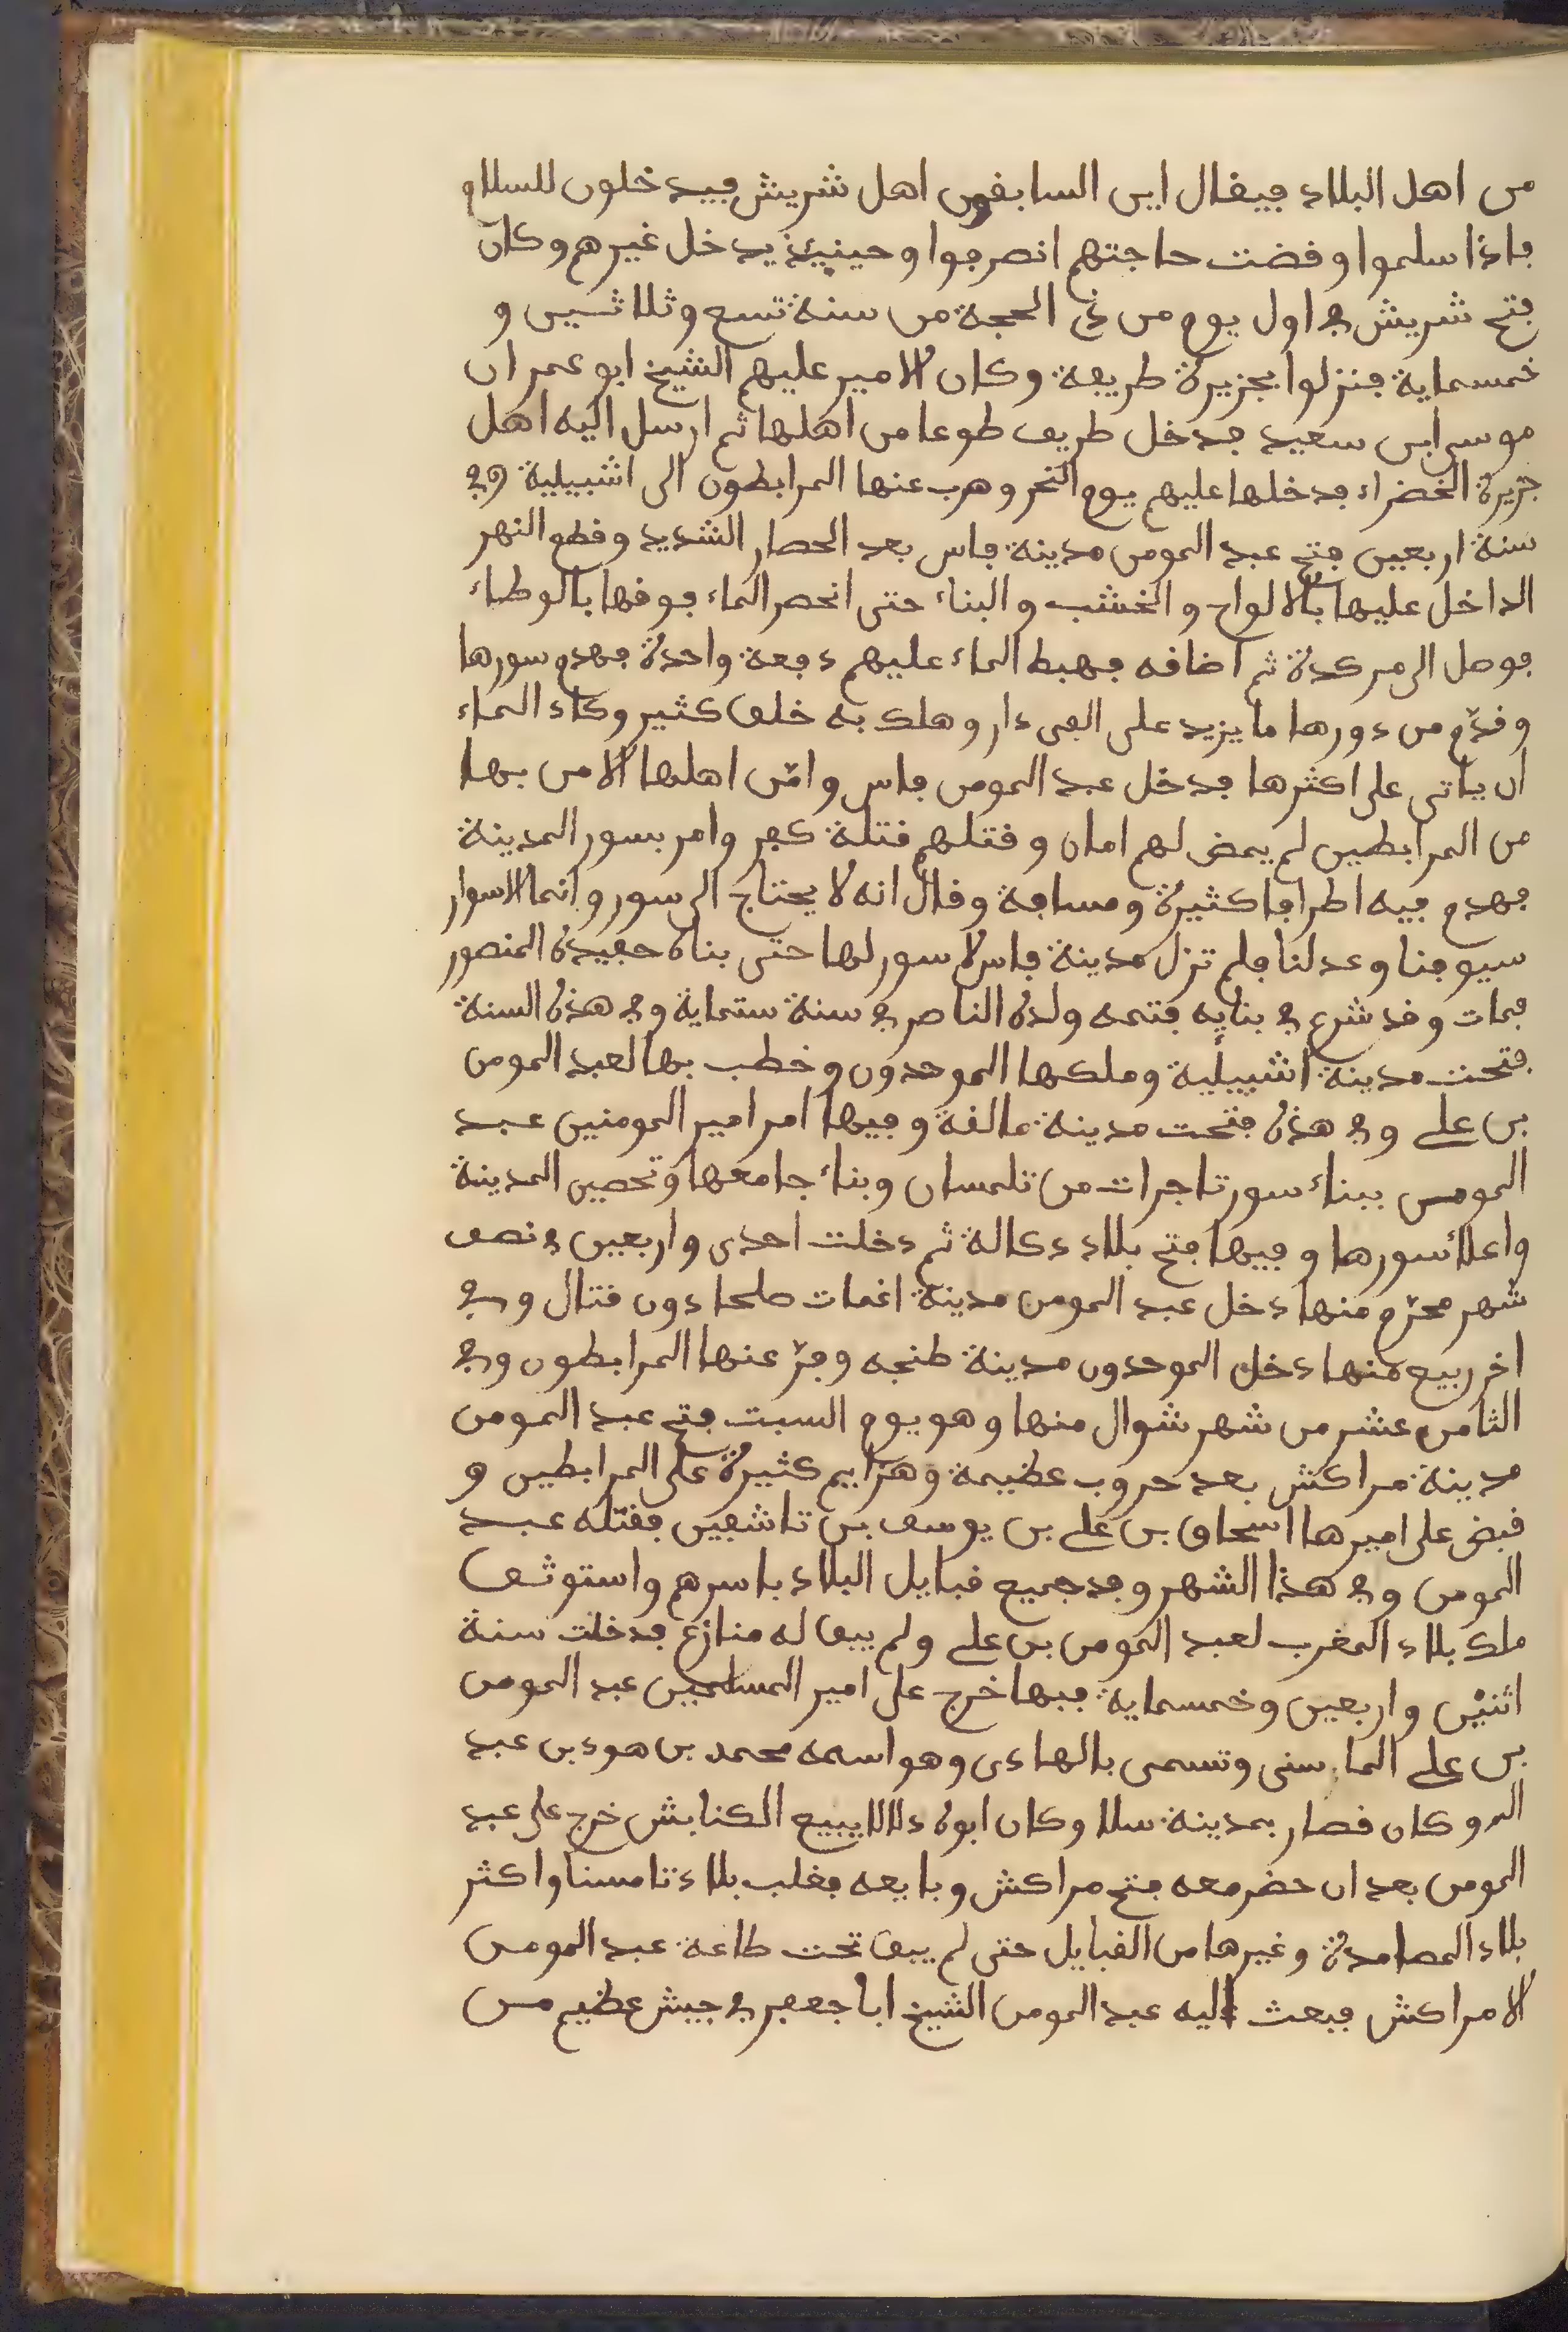 من اهل البلاد فيقال اين السابقون اهل شريش فيدخلون للسلام
فاذا سلموا وقضت حاجتهم انصرفوا وحينيذ يدخل غيرهم وكان
فتح شريش في اول يوم من ذي الحجة من سنة تسع وثلاثين و
خمسماية فنزلوا بجزيرة طريفة وكان الامير عليهم الشيخ ابو عمران
موسى ابن سعيد فدخل طريف طوعا من اهلها ثم ارسل اليه اهل
جزيرة الخضراء فدخلها عليهم يوم النحر وهرب عنها المرابطون الى اشبيلية وفي
سنة اربعين فتح عبد المومن مدينة فاس بعد الحصار الشديد وقطع النهر
الداخل عليها بالالواح والخشب والبناء حتى انحصر الماء فوقها بالوطاء
فوصل الى مركدة ثم اضافه فهبط الماء عليهم دفعة واحدة فهدم سورها
وقدّم من دورها ما يزيد على الفى دار وهلك به خلق كثير وكاد الماء
ان ياتى على اكثرها فدخل عبد المومن فاس وامّن اهلها الا من بها
من المرابطين لم يمض لهم امان وقتلهم قتلة كفر وامر بسور المدينة
فهدم فيه اطرافا كثيرة ومسافة وقال انه لا يحتاج الى سور وانما الاسوار
سيوفنا وعدلنا فلم تزل مدينة فاس لا سور لها حتى بناه حفيده المنصور
فمات وقد شرع في بنايه فتمه ولده الناصر في سنة ستماية وفي هذه السنة
فتحت مدينة اشبيلية وملكها الموحدون وخطب بها لعبد المومن
بن علي وفي هذه فتحت مدينة مالقة وفيها امر امير المومنين عبد
المومن ببناء سور تاجرات من تلمسان وبناء جامعها وتحصين المدينة
واعلاء سورها وفيها فتح بلاد دكالة ثم دخلت احدى واربعين في نصف
شهر محرّم منها دخل عبد المومن مدينة اغمات صلحا دون قتال وفي
اخر ربيع منها دخل الموحدون مدينة طنجه وفرّ عنها المرابطون وفي
الثامن عشر من شهر شوال منها وهو يوم السبت فتح عبد المومن
مدينة مراكش بعد حروب عظيمة وهزايم كثيرة على المرابطين و
قبض على اميرها اسحاق بن علي بن يوسف بن تاشفين فقتله عبد
المومن وفي هذا الشهر وفد جميع قبايل البلاد باسرهم واستوثق
ملك بلاد المغرب لعبد المومن بن علي ولم يبق له منازع فدخلت سنة
اثنين واربعين وخمسماية فيها خرج على امير المسلمين عبد المومن
بن علي الماسنى وتسمى بالهادى وهو اسمه محمد بن هود بن عبد
الله وكان قصار بمدينة سلا وكان ابوه دلالا يبيع الكنابش خرج على عبد
المومن بعد ان حضر معه فتح مراكش وبايعه فغلب بلاد تامسنا واكثر
بلاد المصامدة وغيرها من القبايل حتى لم يبق تحت طاعة عبد المومن
الا مراكش فبعث اليه عبد المومن الشيخ ابا جعفر في جيش عظيم من